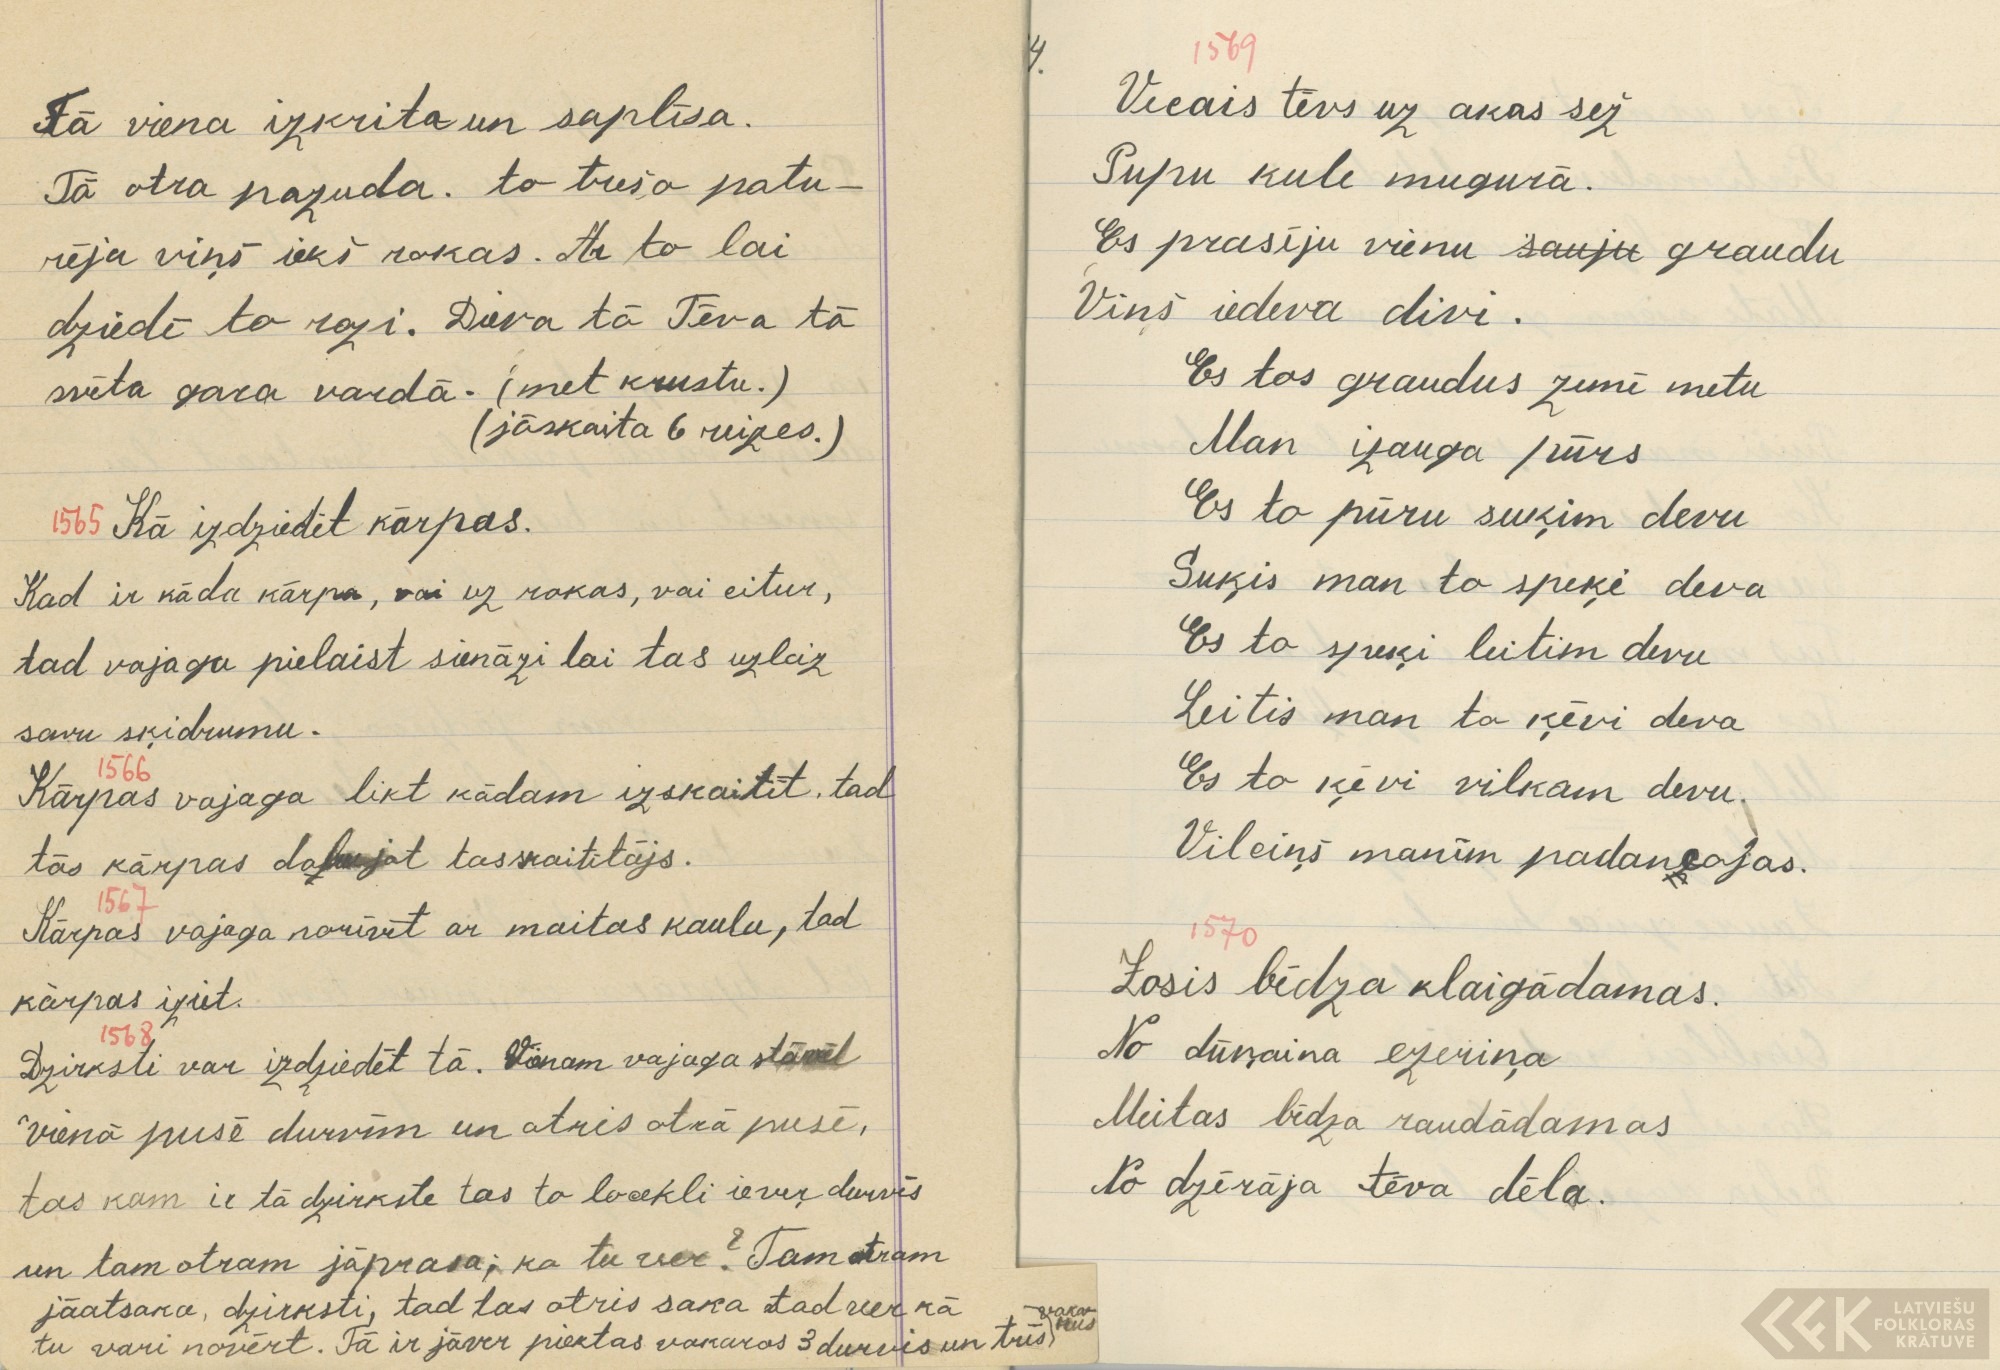 Tā viena izkrita un saplīsa.
Tā otra pazuda. to trešo patu-
rēja viņš iekš rokas. Ar to lai
dziedē to rozi. Dieva tā Tēva tā
svēta gara vardā. (met krustu.)
(jāskaita 6 reizes.)
1565 Kā izdziedēt kārpas.
Kad ir kāda kārpa, vai uz rokas, vai citur,
tad vajaga pielaist sienāzi lai tas uzlaiz
savu sķidrumu.
1566
Kārpas vajaga likt kādam izskaitīt. tad
tās kārpas dabujot tas skaitītājs.
1567
Kārpas vajaga norīvēt ar maitas kaulu, tad
kārpas iziet.
1568
Dzirksti var izdziedēt tā. Vienam vajaga stāvēt
vienā pusē durvīm un otris otrā pusē,
tas kam ir tā dzirkste tas to locekli iever durvīs
un tam otram jāprasa; ko tu ver? Tam otram
jāatsaka, dzirksti, tad tas otris saka tad ver kā
tu vari novērt. Tā ir jāver piektas vakaros 3 durvis un trīs vakarus
4.
1569
Vecais tēvs uz akas sež
Pupu kule mugurā.
Es prasīju vienu sauju graudu
Viņš iedeva divi.
Es tos graudus zemē metu
Man izauga pūrs
Es to pūru suķim devu
Suķis man to speķi deva
Es to speķi leitim devu
Leitis man to ķēvi deva
Es to ķēvi vilkam devu.
Vilciņš manīm padancojas.
1570
Zosis bēdza klaigādamas.
No dūņaina ezeriņa
Meitas bēdza raudādamas
No dzērāja tēva dēla.
LATVIEŠU
FOLKLORAS
KRĀTUVE